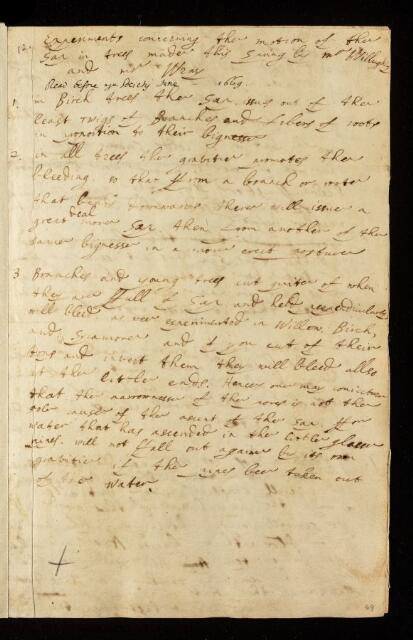 Experiments concerning the motion of the
Sap in trees made this Spring by mr Willughby
and mr Wray
Read before ye Society June 1669.
1. in Birch trees the Sap issues out of the
least twigs of Branches and fibers of roots
in proportion to their bignesse
2. in all trees the gravitie promotes the
bleeding so that from a branch or roote
that bends downwards there will issue a
great deal more Sap then from another of the
same bignesse in a more erect posture
3 Branches and young trees cut quite of when
they are full of Sap and held perpendicularly
will bleed as wee experimented in Willow, Birch,
and Sycamore and if you cut of their
tops and invert them they will bleed allso
at the little ends. Hence one may conjecture
that the narrownesse of the pores is not the
sole cause of the ascent of the Sap for
water that has ascended in the little glasse
pipes will not fall out againe by its own
gravitie if the pipes bee taken out
of the water.
49